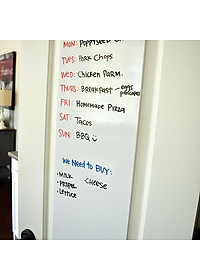 MON: POPPYSEED C
TUES: Pork Chops
WED: Chicken Parm.
THURS: Breakfast - eggs
pancakes
FRI: Homemade Pizza
SAT: Tacos
SUN: BBQ
We Need to BUY:
• MILK - CHEESE
• PROPEL
• LETTUCE